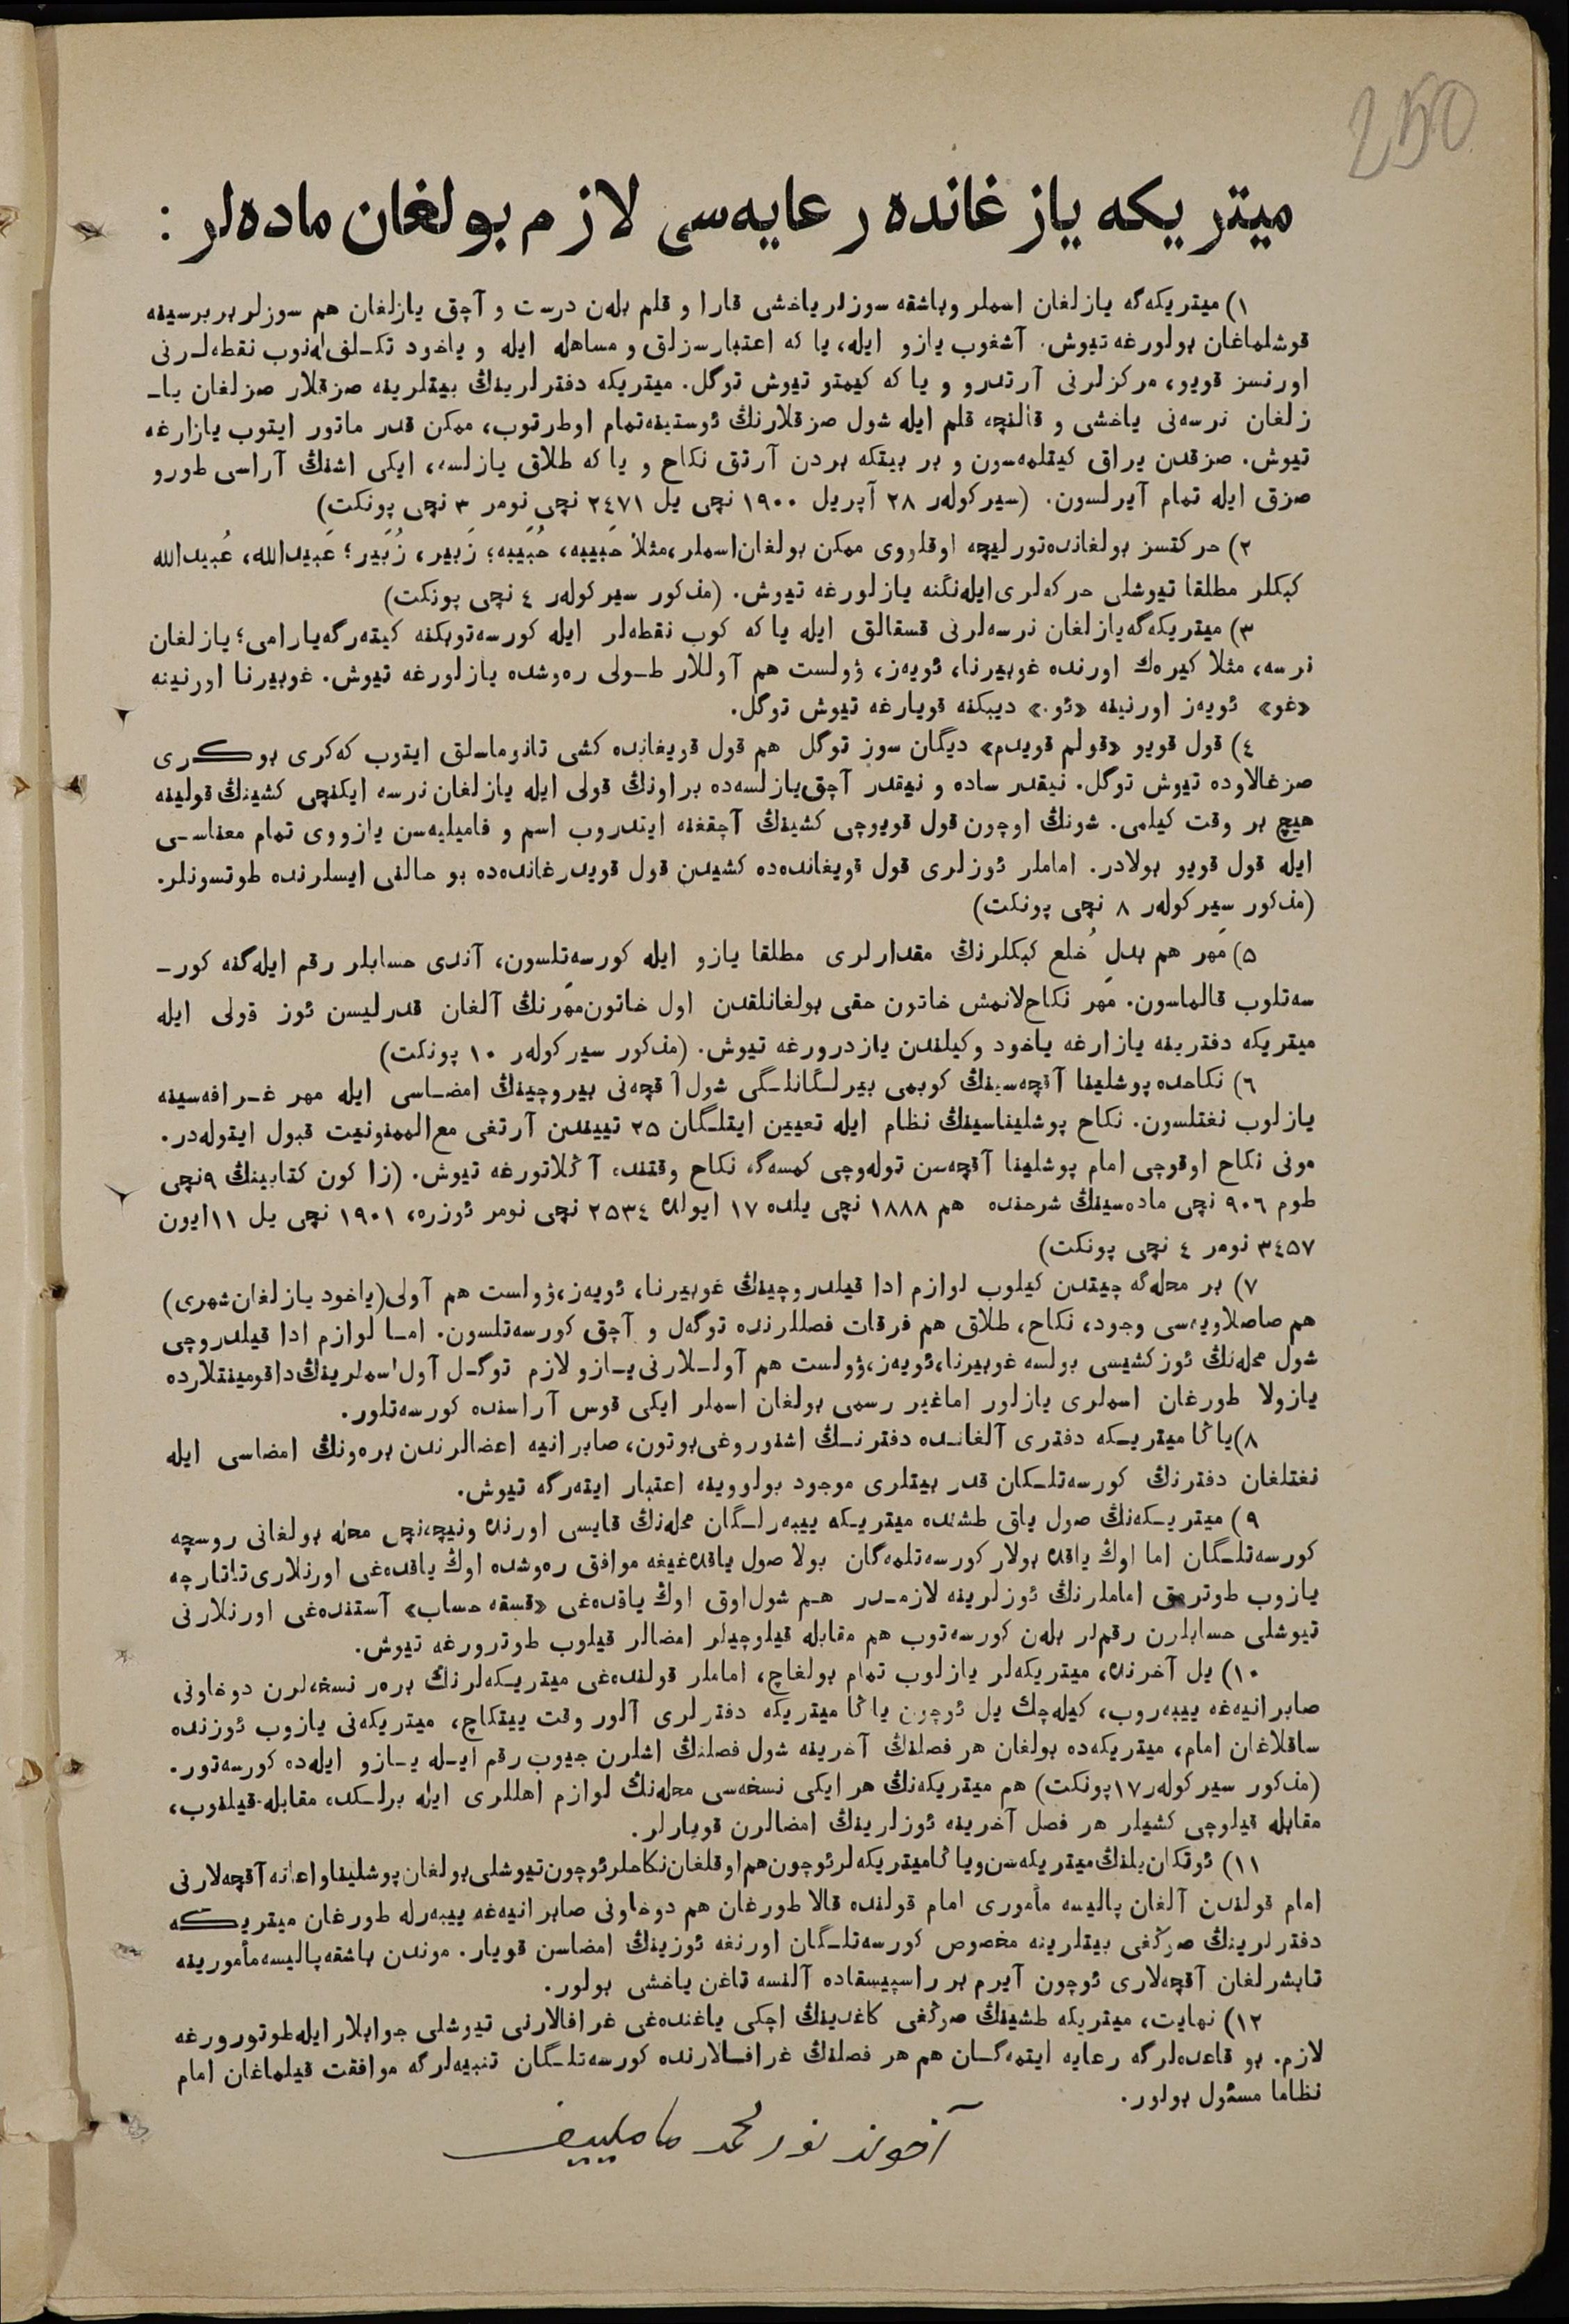 250
میتریکه یازغانده رعایه‌سی لازم بولغان ماده‌لر :
۱) میتریکه‌گه یازلغان اسملر وباشقه سوزلر یاخشی قارا و قلم بله‌ن درست و آچق یازلغان هم سوزلر بربرسینه
قوشلماغان بولورغه تیوش. آشغوب یازو ایله، یا که اعتبارسزلق و مساهله ایله و یاخود تکـلف له‌نوب نقطه‌لـرنی
اورنسز قویو، مرکزلرنی آرتدرو و یا که کیمتو تیوش توگل. میتریکه دفترلرینڭ بیتلرینه صزقلار صزلغان یاـ
زلغان نرسه‌نی یاخشی و قالنچه قلم ایله شول صزقلارنڭ ئوستینه‌تمام اوطرتوب، ممکن قدر ماتور ایتوب یازارغه
تیوش. صزقدن یراق کیتلمه‌سون و بر بیتکه بردن آرتق نکاح و یا که طلاق یازلسه، ایکی اشنڭ آراسی طورو
صزق ایله تمام آیرلسون. (سیرکوله‌ر ۲۸ آپریل ۱۹۰۰ نچی یل ۲٤۷۱ نچی نومر ۳ نچی پونکت)
۲) حرکتسز بولغانده‌تورلیچه اوقلووی ممکن بولغان‌اسملر،مثلا حَبیبه، حُبَیبه؛ زَبیر، زُبَیر؛ عَبیدالله، عُبیدالله
کبکلر مطلقا تیوشلی حرکه‌لری‌ایله‌نگنه یازلورغه تیوش. (مذکور سیرکوله‌ر ٤ نچی پونکت)
۳) میتریکه‌گه‌یازلغان نرسه‌لرنی قسقالق ایله یا که کوب نقطه‌لر ایله کورسه‌توبکنه کیته‌رگه‌یارامی؛ یازلغان
نرسه، مثلا کیره‌ك اورنده غوبیرنا، ئویه‌ز، ۋولست هم آوللار طـولی ره‌وشده یازلورغه تیوش. غوبیرنا اورنینه
«غو» ئویه‌ز اورنینه «ئو.» دیبکنه قویارغه تیوش توگل.
٤) قول قویو «قولم قویدم» دیگان سوز توگل هم قول قویغانده کشی تانوماسـلق ایتوب که‌کری بوکری
صزغالاوده تیوش توگل. نیقدر ساده و نیقدر آچق‌یازلسه‌ده براونڭ قولی ایله یازلغان نرسه ایکنچی کشینڭ قولینه
هیچ بر وقت کیلمی. شونڭ اوچون قول قویوچی کشینڭ آچقغنه ایتدروب اسم و فامیلیه‌سن یازووی تمام معناسـی
ایله قول قویو بولادر. اماملر ئوزلری قول قویغانده‌ده کشیدن قول قویدرغانده‌ده بو حالنی ایسلرنده طوتسونلر.
(مذکور سیرکوله‌ر ۸ نچی پونکت)
۵) مَهر هم بدل خُلع کبکلرنڭ مقدارلری مطلقا یازو ایله کورسه‌تلسون، آندی حسابلر رقم ایله‌گنه کورـ
سه‌تلوب قالماسون. مَهر نکاح‌لانمش خاتون حقی بولغانلقدن اول خاتون‌مهرنڭ آلغان قدرلیسن ئوز قولی ایله
میتریکه دفترینه یازارغه یاخود وکیلندن یازدرورغه تیوش. (مذکور سیرکوله‌ر ۱۰ پونکت)
٦) نکاحده پوشلینا آقچه‌سینڭ کوبمی بیرلـگانلـگی شول آقچه‌نی بیروچینڭ امضـاسی ایله مهر غـرافه‌سینه
یازلوب نغتلسون. نکاح پوشلیناسینڭ نظام ایله تعیین ایتلـگان ۲۵ تییندن آرتغی مع‌الممنونیت قبول ایتوله‌در.
مونی نکاح اوقوچی امام پوشلینا آقچه‌سن توله‌وچی کمسه‌گه نکاح وقتنده آڭلاتورغه تیوش. (زاکون کتابینڭ ۹نچی
طوم ۹۰٦ نچی ماده‌سینڭ شرحنده هم ۱۸۸۸ نچی یلده ۱۷ ایولده ۲۵۳٤ نچی نومر ئوزره، ۱۹۰۱ نچی یل ۱۱ایون
۳٤۵۷ نومر ٤ نچی پونکت)
۷) بر محله‌گه چیتدن کیلوب لوازم ادا قیلدروچینڭ غوبیرنا، ئویه‌ز،ۋولست هم آولی(یاخود یازلغان‌شهری)
هم صاصلاویه‌سی وجود، نکاح، طلاق هم فرقات فصللرنده توگه‌ل و آچق کورسه‌تلسون. امـا لوازم ادا قیلدروچی
شول محله‌نڭ ئوز کشیسی بولسه غوبیرنا،ئویه‌ز،ۋولست هم آولـلارنی یـازو لازم توگـل آول اسملرینڭ‌داقومینتلارده
یازولا طورغان اسملری یازلور اماغیر رسمی بولغان اسملر ایکی قوس آراسنده کورسه‌تلور.
۸)یاڭا میتریـکه دفتری آلغانـده دفترنـڭ اشنوروغی‌بوتون، صابرانیه اعضالرندن بره‌ونڭ امضاسی ایله
نغتلغان دفترنڭ کورسه‌تلـکان قدر بیتلری موجود بولووینه اعتبار ایته‌رگه تیوش.
۹) میتریـکه‌نڭ صول یاق طشنده میتریـکه ییبه‌رلـگان محله‌نڭ قایسی اورنده ونیچه‌نچی محله بولغانی روسچه
کورسه‌تلـگان اما اوڭ یاقده بولار کورسه‌تلمه‌گان بولا صول یاقده‌غیغه موافق ره‌وشده اوڭ یاقده‌غی اورنلاری‌تاتارچه
یازوب طوترمق اماملرنڭ ئوزلرینه لازمـدر هـم شول‌اوق اوڭ یاقده‌غی «قسقه حساب» آستنده‌غی اورنلارنی
تیوشلی حسابلرن رقم‌لر بله‌ن کورسه‌توب هم مقابله قیلوچیلر امضالر قیلوب طوترورغه تیوش.
۱۰) یل آخرنده، میتریکه‌لر یازلوب تمام بولغاچ، اماملر قولنده‌غی میتریـکه‌لرنڭ بره‌ر نسخه‌لرن دوخاونی
صابرانیه‌غه ییبه‌روب، کیله‌چك یل ئوچون یاڭا میتریکه دفترلری آلور وقت ییتکاچ، میتریکه‌نی یازوب ئوزنده
ساقلاغان امام، میتریکه‌ده بولغان هر فصلنڭ آخرینه شول فصلنڭ اشلرن جیوب رقم ایـله یـازو ایله‌ده کورسه‌تور.
(مذکور سیرکوله‌ر۱۷پونکت) هم میتریکه‌نڭ هر ایکی نسخه‌سی محله‌نڭ لوازم اهللری ایله برلـکده مقابله قیلنوب،
مقابله قیلوچی کشیلر هر فصل آخرینه ئوزلرینڭ امضالرن قویارلر.
۱۱) ئوتکان‌یلنڭ‌میتریکه‌سن‌ویاڭامیتریکه‌لرئوچون‌هم‌اوقلغان‌نکاحلرئوچون‌تیوشلی‌بولغان‌پوشلیناواعانه آقچه‌لارنی
امام قولندن آلغان پالیسه مأموری امام قولنده قالا طورغان هم دوخاونی صابرانیه‌غه ییبه‌رله طورغان میتریکه
دفترلرینڭ صوڭغی بیتلرینه مخصوص کورسه‌تلـگان اورنغه ئوزینڭ امضاسن قویار. موندن باشقه‌پالیسه‌مأمورینه
تابشرلغان آقچه‌لاری ئوچون آیرم بر راسپیسقاده آلنسه تاغن یاخشی بولور.
۱۲) نهایت، میتریکه طشینڭ صوڭغی کاغدینڭ اچکی یاغنده‌غی غرافالارنی تیوشلی جوابلارایله‌طوتورورغه
لازم. بو قاعده‌لرگه رعایه ایتمه‌گـان هم هر فصلنڭ غرافـالارنده کورسه‌تلـگان تنبیه‌لرگه موافقت قیلماغان امام
نظاما مسئول بولور.
آخوند نورمحمد ماملییف